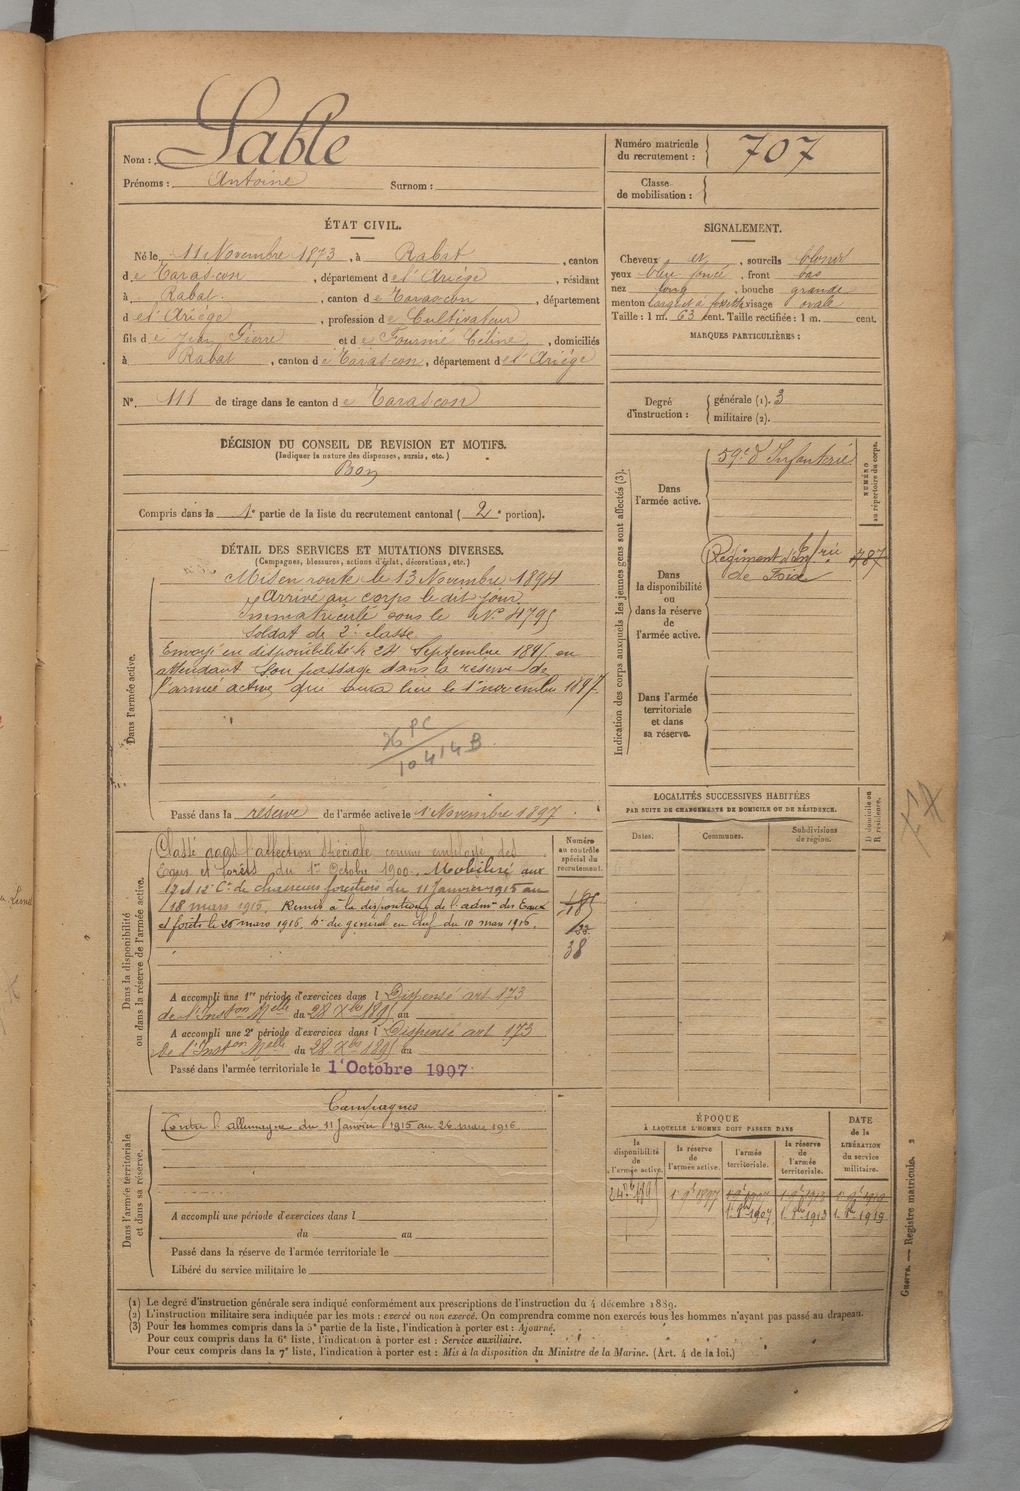 Nom : Sable
Prénoms : Antoine Surnom :
Numéro matricule du recrutement : 707
Classe de mobilisation :
ÉTAT CIVIL.
Né le 11 Novembre 1873, à Rabat, canton
de Tarascon, département de l'Ariège, résidant
à Rabat, canton de Tarascon, département
de l'Ariège, profession de Cultivateur
fils de Jean Pierre et de Fournié Céline, domiciliés
à Rabat, canton de Tarascon, département de l'Ariège
N° 111 de tirage dans le canton de Tarascon
SIGNALEMENT.
Cheveux et, sourcils blonds
yeux bleu foncé, front bas
nez long, bouche grande
menton large et à fossette visage ovale
Taille : 1 m. 63 cent. Taille rectifiée : 1 m. cent.
MARQUES PARTICULIÈRES :
Degré d'instruction : générale (1). 3
militaire (2).
DÉCISION DU CONSEIL DE REVISION ET MOTIFS.
(Indiquer la nature des dispenses, sursis, etc.)
Bon
Compris dans la 1e partie de la liste du recrutement cantonal (2e portion).
DÉTAIL DES SERVICES ET MUTATIONS DIVERSES.
(Campagnes, blessures, actions d'éclat, décorations, etc.)
Dans l'armée active.
Mis en route le 13 Novembre 1894
Arrivé au corps le dit jour
Immatriculé sous le N° 4795
Soldat de 2e classe
Envoyé en disponibilité le 24 Septembre 1895 en
attendant son passage dans la réserve de
l'armée active qui aura lieu le 1er novembre 1897.
PC
10414B
Passé dans la réserve de l'armée active le 1er Novembre 1897.
Indication des corps auxquels les jeunes gens sont affectés (3).
NUMÉRO au répertoire du corps.
Dans l'armée active.
59e d'Infanterie
Dans la disponibilité ou dans la réserve de l'armée active.
Régiment d'Infrie 787
de Foix
Dans l'armée territoriale et dans sa réserve.
Dans la disponibilité ou dans la réserve de l'armée active.
Numéro au contrôle spécial du recrutement.
Classé dans l'affection spéciale comme employé des
Eaux et forêts du 1er Octobre 1900. Mobilisé aux
17 et 12e Cie de chasseurs forestiers du 11 Janvier 1915 au
18 mars 1916. Remis à la disposition de l'admon des Eaux
et forêts le 26 mars 1916. Don du général en chef du 10 mars 1916.
38
A accompli une 1re période d'exercices dans l Dispensé art 173
de l'Inston Melle du 28 Xbre 1895 au
A accompli une 2e période d'exercices dans l Dispensé art 173
de l'Inston Melle du 28 Xbre 1895 au
Passé dans l'armée territoriale le 1er Octobre 1907
Dans l'armée territoriale et dans sa réserve.
Campagnes
Contre l'allemagne du 11 Janvier 1915 au 26 mars 1916
A accompli une période d'exercices dans l
du au
Passé dans la réserve de l'armée territoriale le
Libéré du service militaire le
LOCALITÉS SUCCESSIVES HABITÉES
PAR SUITE DE CHANGEMENTS DE DOMICILE OU DE RÉSIDENCE.
D domicile ou R résidence.
Dates. Communes. Subdivisions de région.
ÉPOQUE
À LAQUELLE L'HOMME DOIT PASSER DANS
DATE de la LIBÉRATION du service militaire.
la disponibilité de l'armée active.
la réserve de l'armée active.
l'armée territoriale.
la réserve de l'armée territoriale.
24 7bre 1895 1er 9bre 1897 1er 9bre 1907 1er 9bre 1913 1er 9bre 1919
1er 8bre 1907 1er 8bre 1913 1er 8bre 1919
Guerre. — Registre matricule. 2
(1) Le degré d'instruction générale sera indiqué conformément aux prescriptions de l'instruction du 4 décembre 1889.
(2) L'instruction militaire sera indiquée par les mots : exercé ou non exercé. On comprendra comme non exercés tous les hommes n'ayant pas passé au drapeau.
(3) Pour les hommes compris dans la 5e partie de la liste, l'indication à porter est : Ajourné.
Pour ceux compris dans la 6e liste, l'indication à porter est : Service auxiliaire.
Pour ceux compris dans la 7e liste, l'indication à porter est : Mis à la disposition du Ministre de la Marine. (Art. 4 de la loi.)